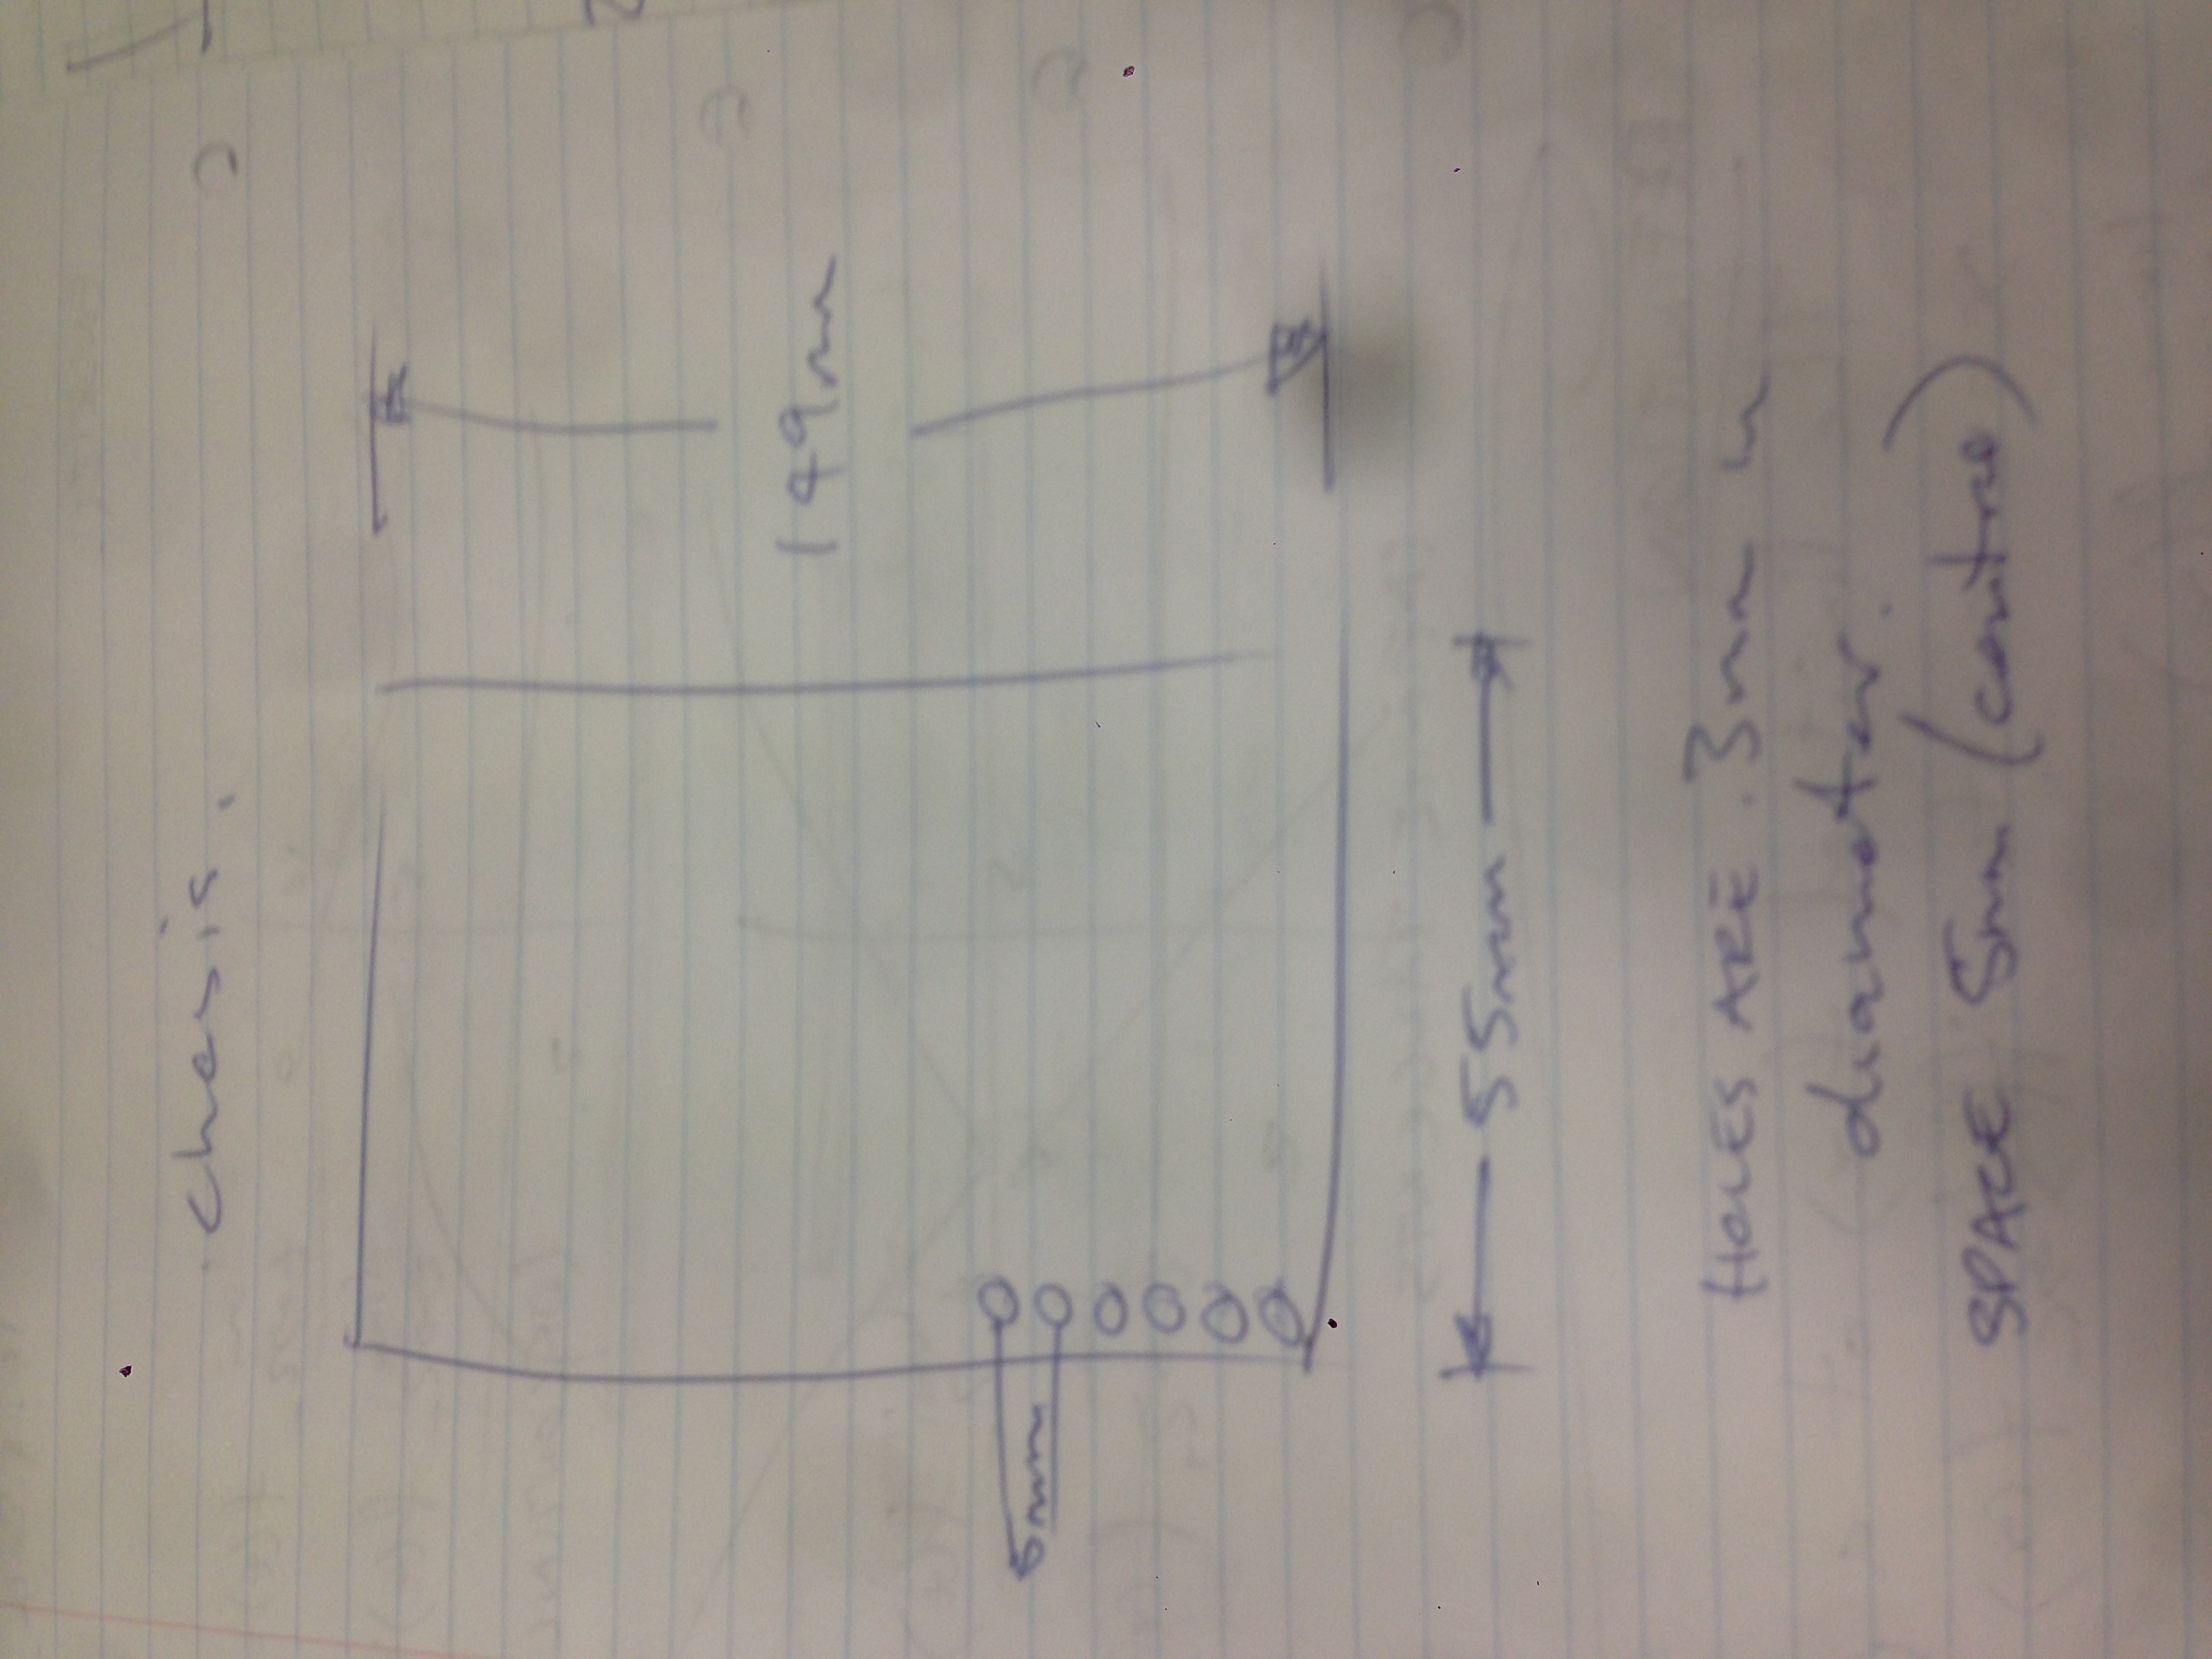 chasis.
149mm
5mm
55mm
HOLES ARE 3mm in
diameter.
SPACE 5mm (centre)